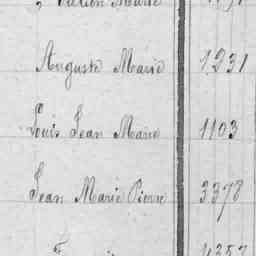 Marie
Auguste Marie 1231
Louis Jean Marie 1103
Jean Marie Pierre 3378
4357